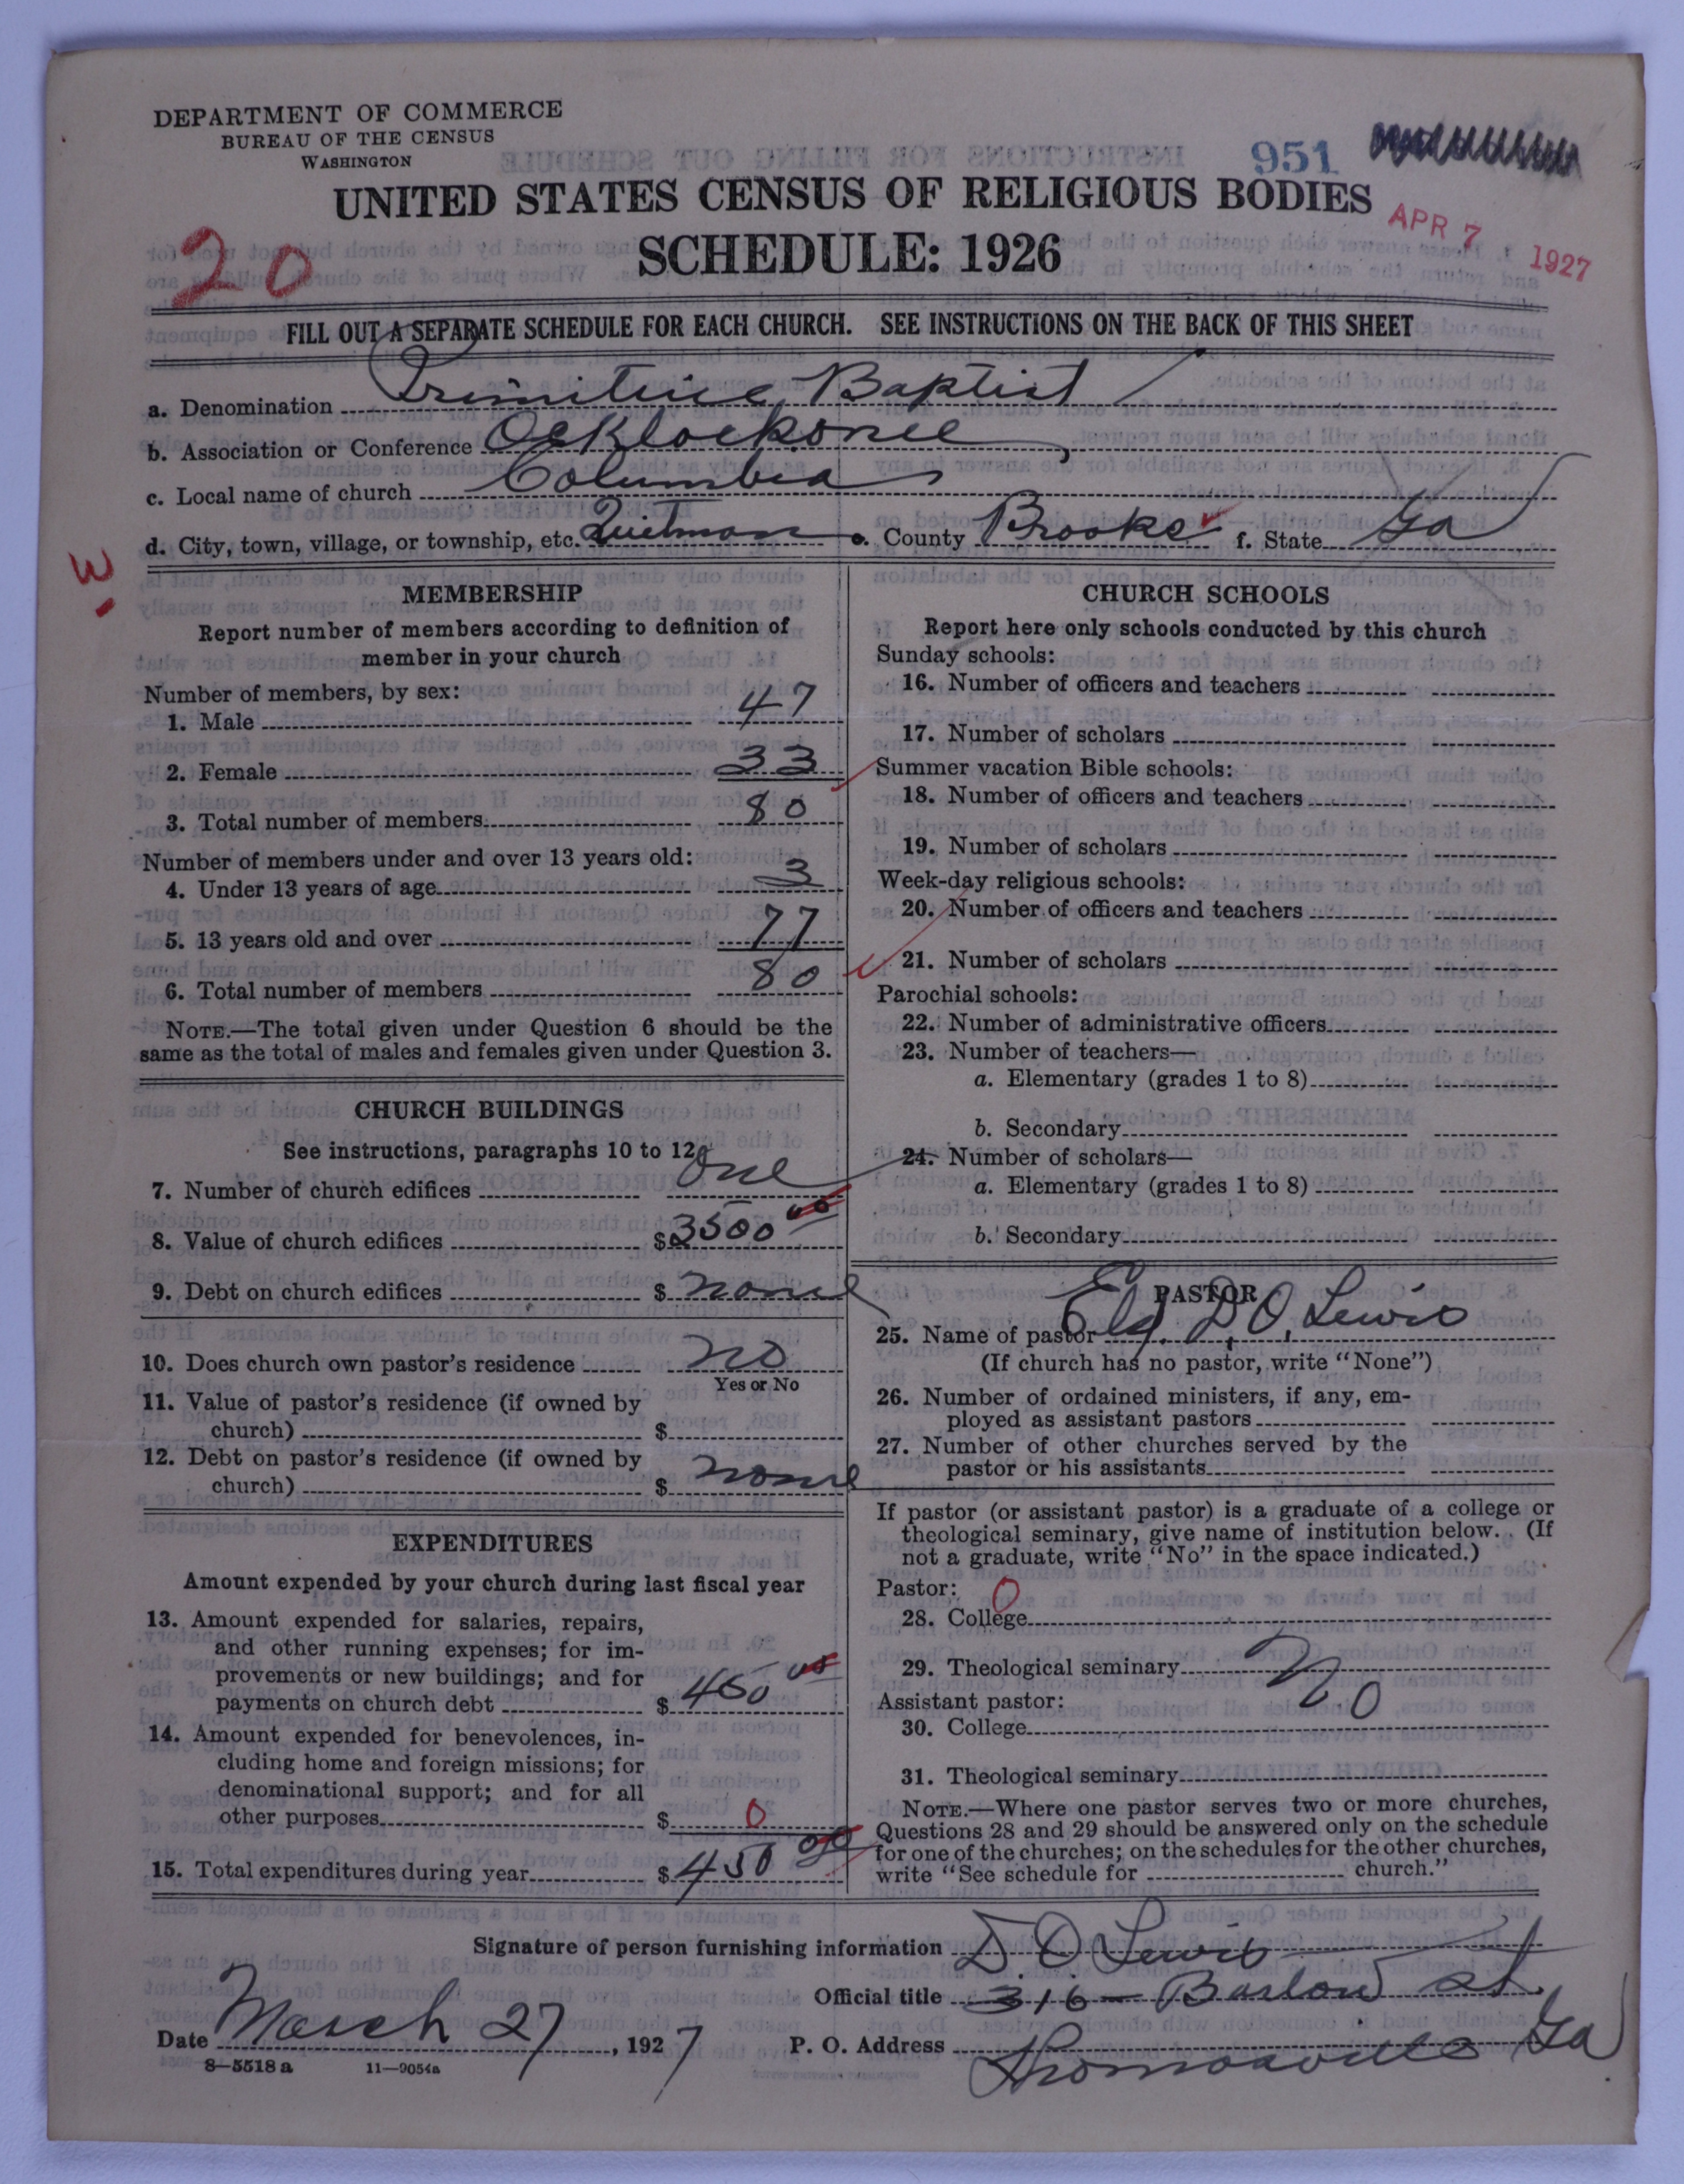 DEPARTMENT OF COMMERCE
BUREAU OF THE CENSUS
WASHINGTON
951
UNITED STATES CENSUS OF RELIGIOUS BODIES
APR 7 1927
20
SCHEDULE: 1926
FILL OUT A SEPARATE SCHEDULE FOR EACH CHURCH. SEE INSTRUCTIONS ON THE BACK OF THIS SHEET
a. Denomination Primitive Baptist
b. Association or Conference Ocklockonee
c. Local name of church Columbia
d. City, town, village, or township, etc. Quitman e. County Brooks f. State Ga
W
MEMBERSHIP
Report number of members according to definition of
member in your church
Number of members, by sex:
1. Male 47
2. Female 33
3. Total number of members 80
Number of members under and over 13 years old:
4. Under 13 years of age 3
5. 13 years old and over 77
6. Total number of members 80
NOTE.—The total given under Question 6 should be the
same as the total of males and females given under Question 3.
CHURCH BUILDINGS
See instructions, paragraphs 10 to 12
7. Number of church edifices one
8. Value of church edifices $3500 00
9. Debt on church edifices $ none
10. Does church own pastor's residence no
Yes or No
11. Value of pastor's residence (if owned by
church) $
12. Debt on pastor's residence (if owned by
church) $ none
EXPENDITURES
Amount expended by your church during last fiscal year
13. Amount expended for salaries, repairs,
and other running expenses; for im-
provements or new buildings; and for
payments on church debt $ 450 00
14. Amount expended for benevolences, in-
cluding home and foreign missions; for
denominational support; and for all
other purposes $ 0
15. Total expenditures during year $ 450 00
CHURCH SCHOOLS
Report here only schools conducted by this church
Sunday schools:
16. Number of officers and teachers
17. Number of scholars
Summer vacation Bible schools:
18. Number of officers and teachers
19. Number of scholars
Week-day religious schools:
20. Number of officers and teachers
21. Number of scholars
Parochial schools:
22. Number of administrative officers
23. Number of teachers—
a. Elementary (grades 1 to 8)
b. Secondary
24. Number of scholars—
a. Elementary (grades 1 to 8)
b. Secondary
PASTOR
25. Name of pastor Eld. D. O. Lewis
(If church has no pastor, write "None")
26. Number of ordained ministers, if any, em-
ployed as assistant pastors
27. Number of other churches served by the
pastor or his assistants
If pastor (or assistant pastor) is a graduate of a college or
theological seminary, give name of institution below. (If
not a graduate, write "No" in the space indicated.)
Pastor: 0
28. College
29. Theological seminary No
Assistant pastor:
30. College
31. Theological seminary
NOTE.—Where one pastor serves two or more churches,
Questions 28 and 29 should be answered only on the schedule
for one of the churches; on the schedules for the other churches,
write "See schedule for church."
Signature of person furnishing information D O Lewis
Official title 316 - Barlow St.
Date March 27, 1927 P. O. Address Thomasville Ga
8—5518 a 11—9054a